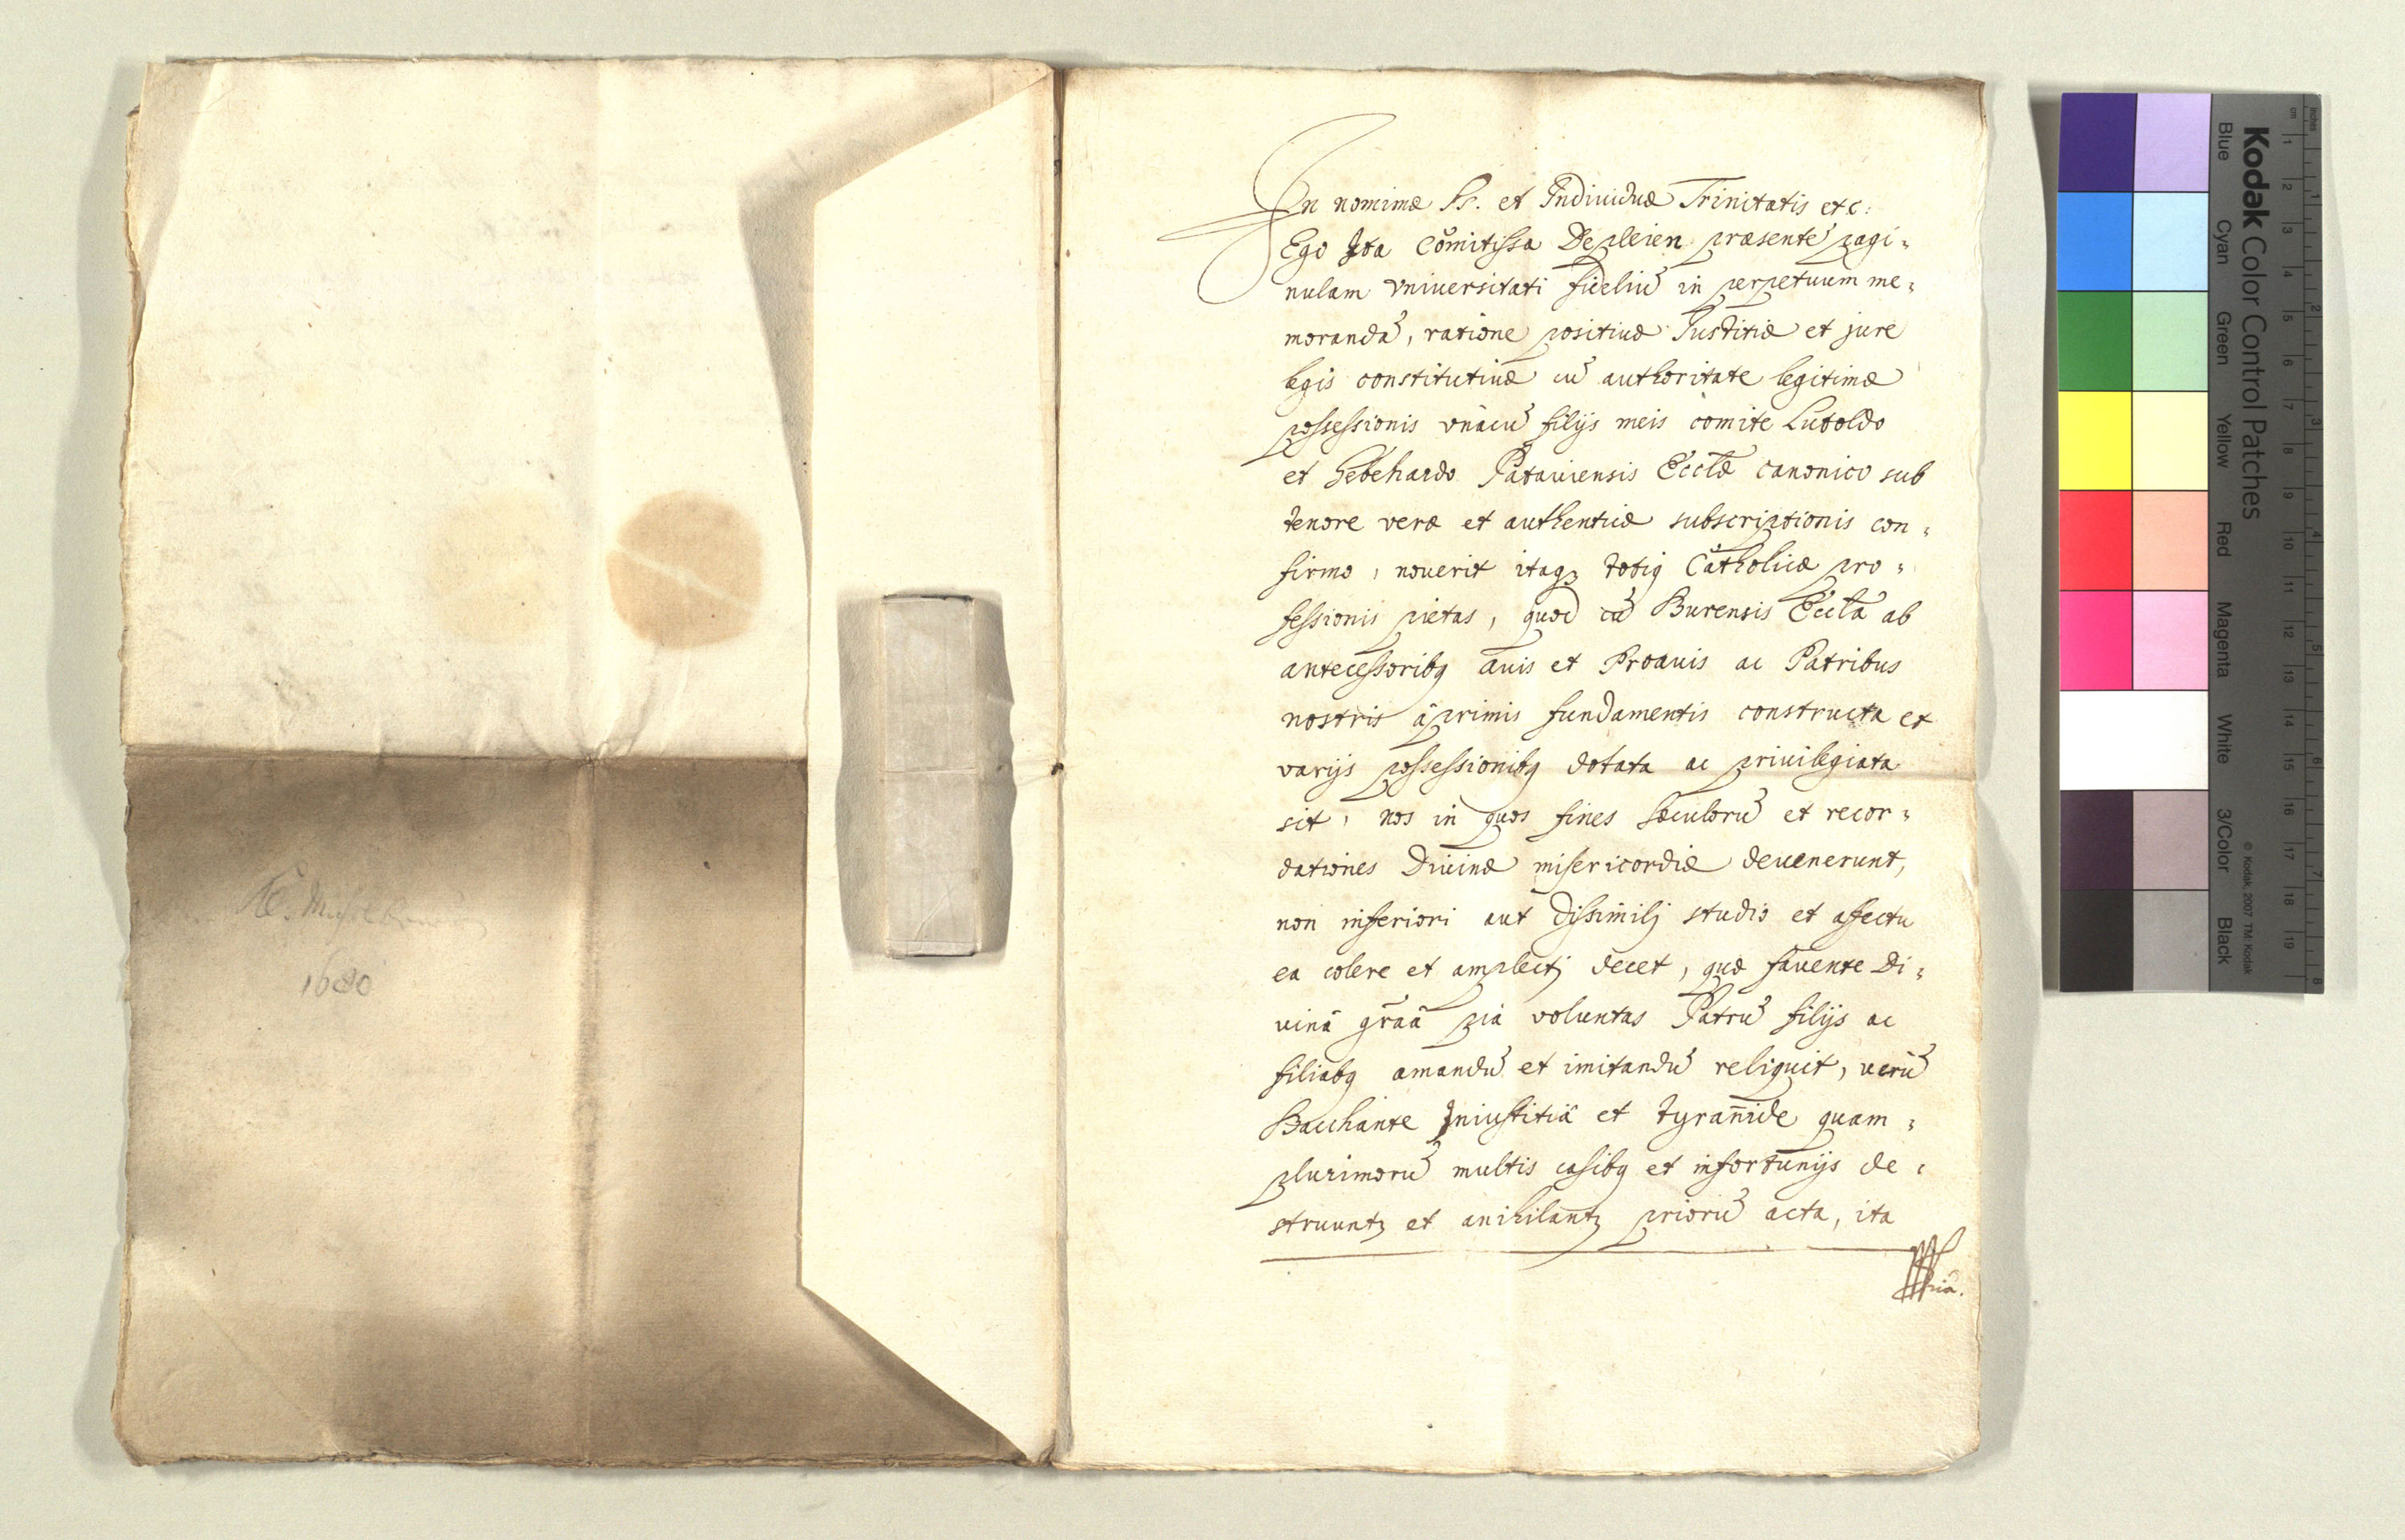 1680
In nominæ Ss. et Indiuiduæ Trinitatis etc:
Ego Ita Comitissa De pleien præsentē pagi=
nulam vniuersitati fideliū in perpetuum me=
morandā, ratione positiuæ Iustitiæ et jure
legis constitutiuæ cū authoritate legitimæ
possessionis vnàcū filijs meis comite Lutoldo
et Gebehardo Patauiensis Eccl̃æ canonico sub
tenore veræ et authenticæ subscriptionis con=
firmo, nouerit itaqꝫ totiꝰ Catholicæ pro=
fessionis pietas, quod cū Burensis Eccl̃a ab
antecessoribꝰ auis et Proauis ac Patribus
nostris à primis fundamentis constructa et
varijs possessionibꝰ dotata ac priuilegiata
sit, nos in quos fines sæculorū et recor=
dationes Diuinæ misericordiæ deuenerunt,
non inferiori aut dissimilj studio et affectu
ea colere et amplectj decet, quæ fauente Di=
uinâ gr̃aâ pia voluntas Patrū filijs ac
filiabꝰ amandū et imitandū reliquit, verū
Bacchante Iniustitiâ et tyrañide quam=
plurimorū multis casibꝰ et infortunijs de=
struuntꝫ et anihilantꝫ priorū acta, ita
Kodak Color Control Patches
Blue
Cyan
Green
Yellow
Red
Magenta
White
3/Color
Black
© Kodak, 2007 TM: Kodak
inches
cm
1 2 3 4 5 6 7 8
1 2 3 4 5 6 7 8 9 10 11 12 13 14 15 16 17 18 19